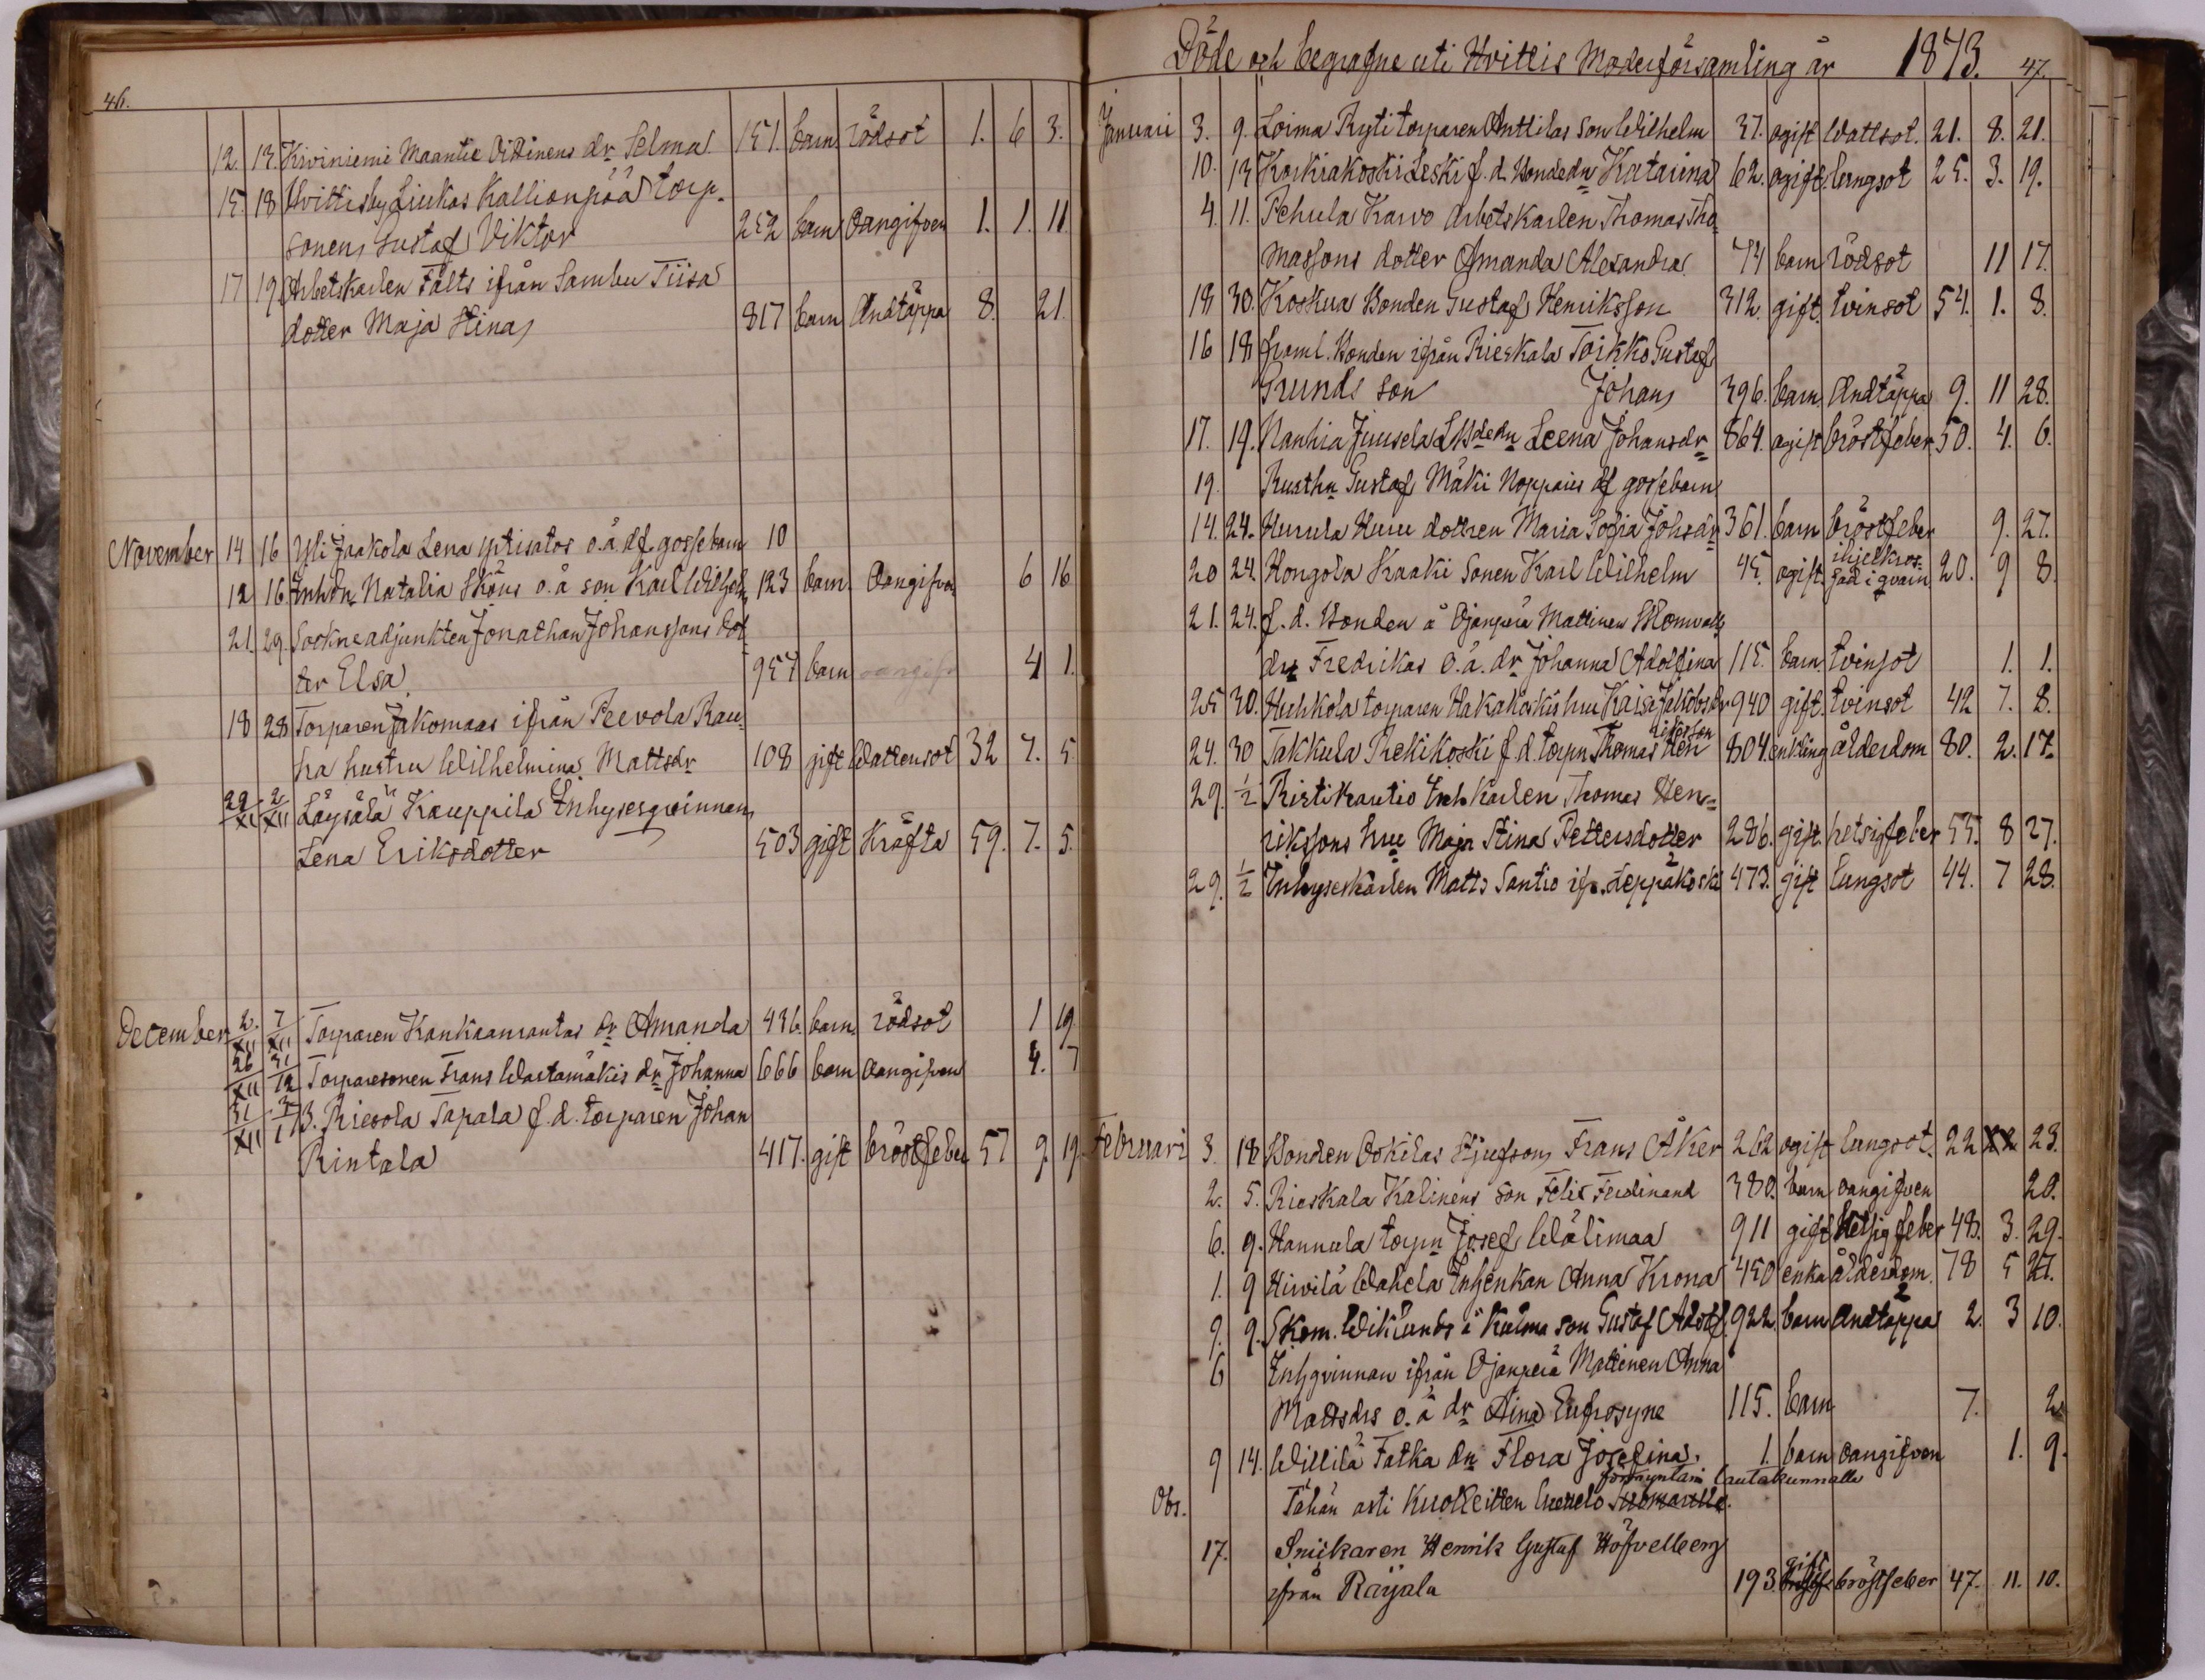 46.
12. 13. Kiviniemi Maantie Vidinens dr Selma 151. barn rödsot 1. 6 3.
15. 18 Hvittisby Liukas Kallionpää torp.
sonens Gustaf Viktor 252 barn Oangifven 1. 1. 11
17 19 Arbetskarlen Fälts ifrån Sambu Tiisa
dotter Maja Stina 817 barn Andtäppa 8. 21.
November 14 16 Yli Jaakola Lena o.ä. df. gossebarn 10
12 16 Inhdn Natalia Sköns o.ä son Karl Wilhelm 123 barn Oangifven 6 16
21. 29. Sockneadjunkten Jonathan Johanssons dot
ter Elsa 957 barn oangifv 4 1.
18 28 Torparen Jakomaas ifrån Peevola Rau
ha hustru Wilhelmina Mattsdr 108 gift Wattensot 32 7. 5
29/XI 2/XII Löysälä Kauppila Inhysesqvinnan
Lena Eriksdotter 503 gift Kräfta 59. 7. 5.
December 2./XII 7/XII Torparen Kankaanrantas dr Amanda 436. barn rödsot 1 19
26/XII 31/12 Torparesonen Frans Wartamäkis dr Johanna 666 barn Oangifven 4. 7
31/XII 3/1 73. Riesola Tapala f.d. torparen Johan
Rintala 417. gift bröstfeber 57 9. 19.
Döde och begrafne uti Hvittis Moderförsamling år 1873. 47.
Januari 3. 9. Loima Ryti torparen Anttilas son Wilhelm 37. ogift Wattsot. 21. 8. 21.
10. 13 Korkiakoski Leski f.d. Bondedn Katarina 62. ogift lungsot 25. 3. 19.
4. 11. Pehula Karvo Arbetskarlen Thomas Tho
massons dotter Amanda Alexandra 74 barn rödsot 11 17.
18 30. Koskua Bonden Gustaf Henriksson 312. gift. tvinsot 54. 1. 8.
16 18 framl. Bonden ifrån Rieskala Toikko Gustaf
Grunds son Johan 396. barn. Andtäppa 9. 11 28.
17. 19. Nanhia Juusela Leena Johansdr 864. ogift bröstfeber 50. 4. 6.
19. Gustaf Mäki Noppais df gossebarn
14. 24. Hurula Huru dottren Maria Sofia Johsdr 361. barn bröstfeber 9. 27.
20 24. Hongola Kaaki Sonen Karl Wilhelm 45. ogift. ihjelkros-
sad i qvarn 20. 9 8.
21. 24. f.d. Bonden å Ojanperä Mattinen Blomvall
dn Fredrikas o.ä. dr Johanna Adolfina 115. barn tvinsot 1. 1.
25 30. Huhkola torparen Hakakoskis hru Kaisa Jakobsdr 940 gift. tvinsot 42 7. 8.
24. 30 Takkula Rekikoski f.d. torpn Thomas Hen
riksson 804. enkling ålderdom 80. 2. 17.
29. 1/2 Ristikautio Inh. karlen Thomas Hen=
rikssons hru Maja Stina Pettersdotter 286. gift. hetsigfeber 55. 8 27.
29. 1/2 Inhyseskarlen Matts Santio ifr. Leppäkoski 473. gift lungsot 44. 7 28.
Februari 3. 18 Bonden Oskilas Stjufson Frans Åker 262 ogift lungsot. 22 23.
2. 5. Rieskala Kalinens son Felix Ferdinand 380. barn oangifven 20.
6. 9. Hannula torpn Josef Wälimaa 911 gift Hetsig feber 48. 3. 29.
1. 9 Hivilä Wahela Inhenkan Anna Krona 450 enka ålderdom. 78 5 27.
9. 9. Skom. Wiklunds å Kulma son Gustaf Adolf 922. barn Andtäppa 2. 3 10.
6 Inhqvinnan ifrån Ojanperä Mattinen Anna
Mattsdrs o.ä dr Aina Eufrosyne 115. barn 7. 2
9 14. Willilä Fatka dn Flora Josefina. 1. barn oangifven 1. 9.
Obs. Tähän asti Kuolleitten luettelo Lautakunnalle
17. Snickaren Henrik Gustaf Höfvelberg
ifrån Räijälä 193. gift bröstfeber 47. 11. 10.